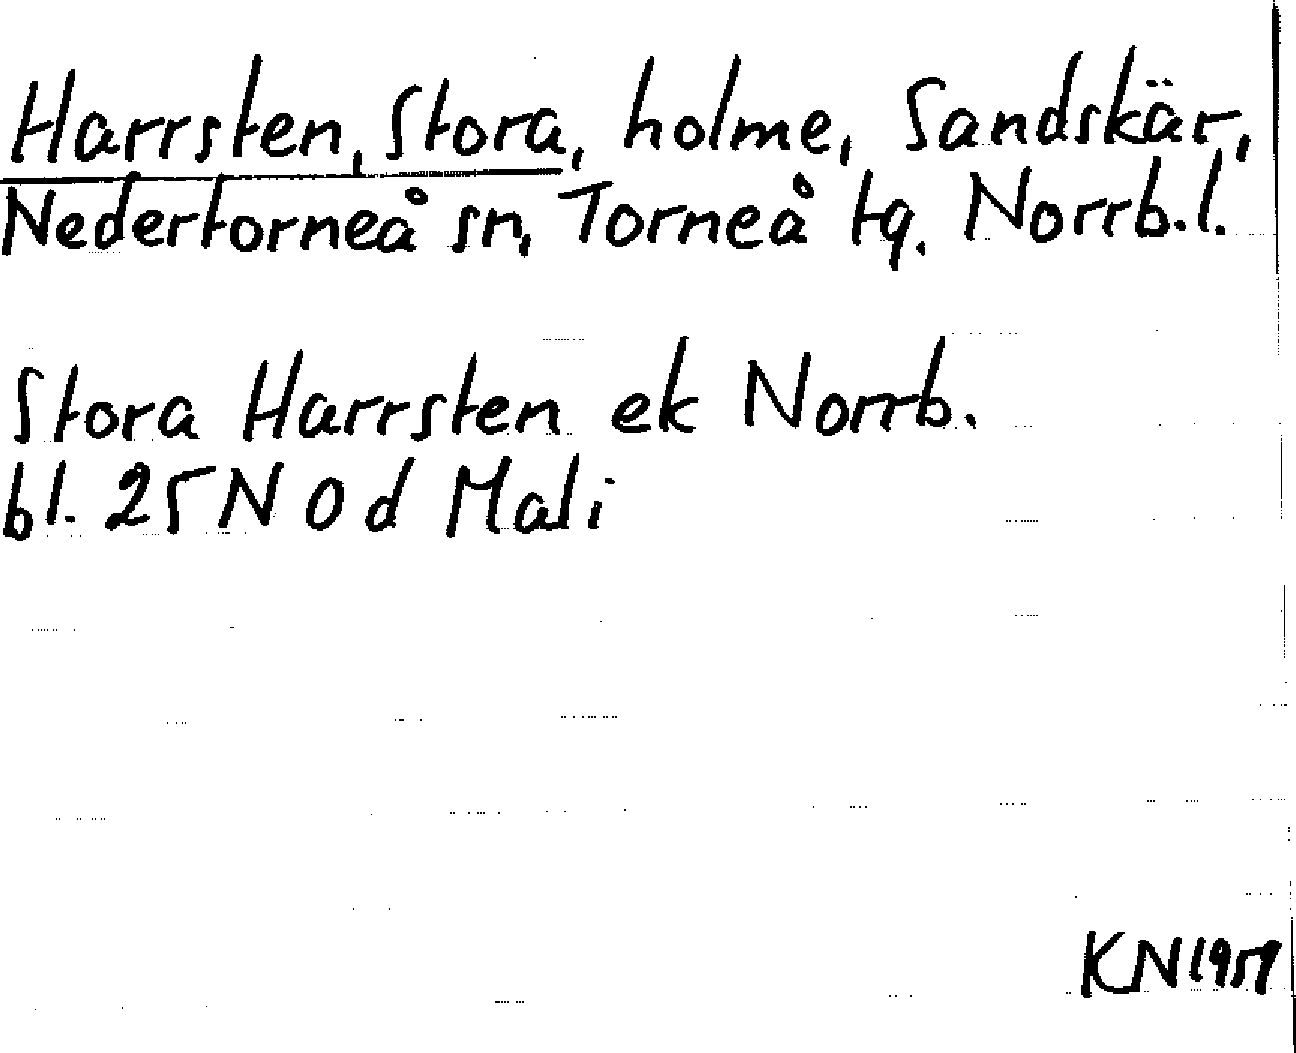 Harrsten, Stora, holme, Sandskär,
Nedertorneå sn, Torneå tg. Norrb.l.
Stora Harrsten ek Norrb.
bl. 25 N O d Mali
KN